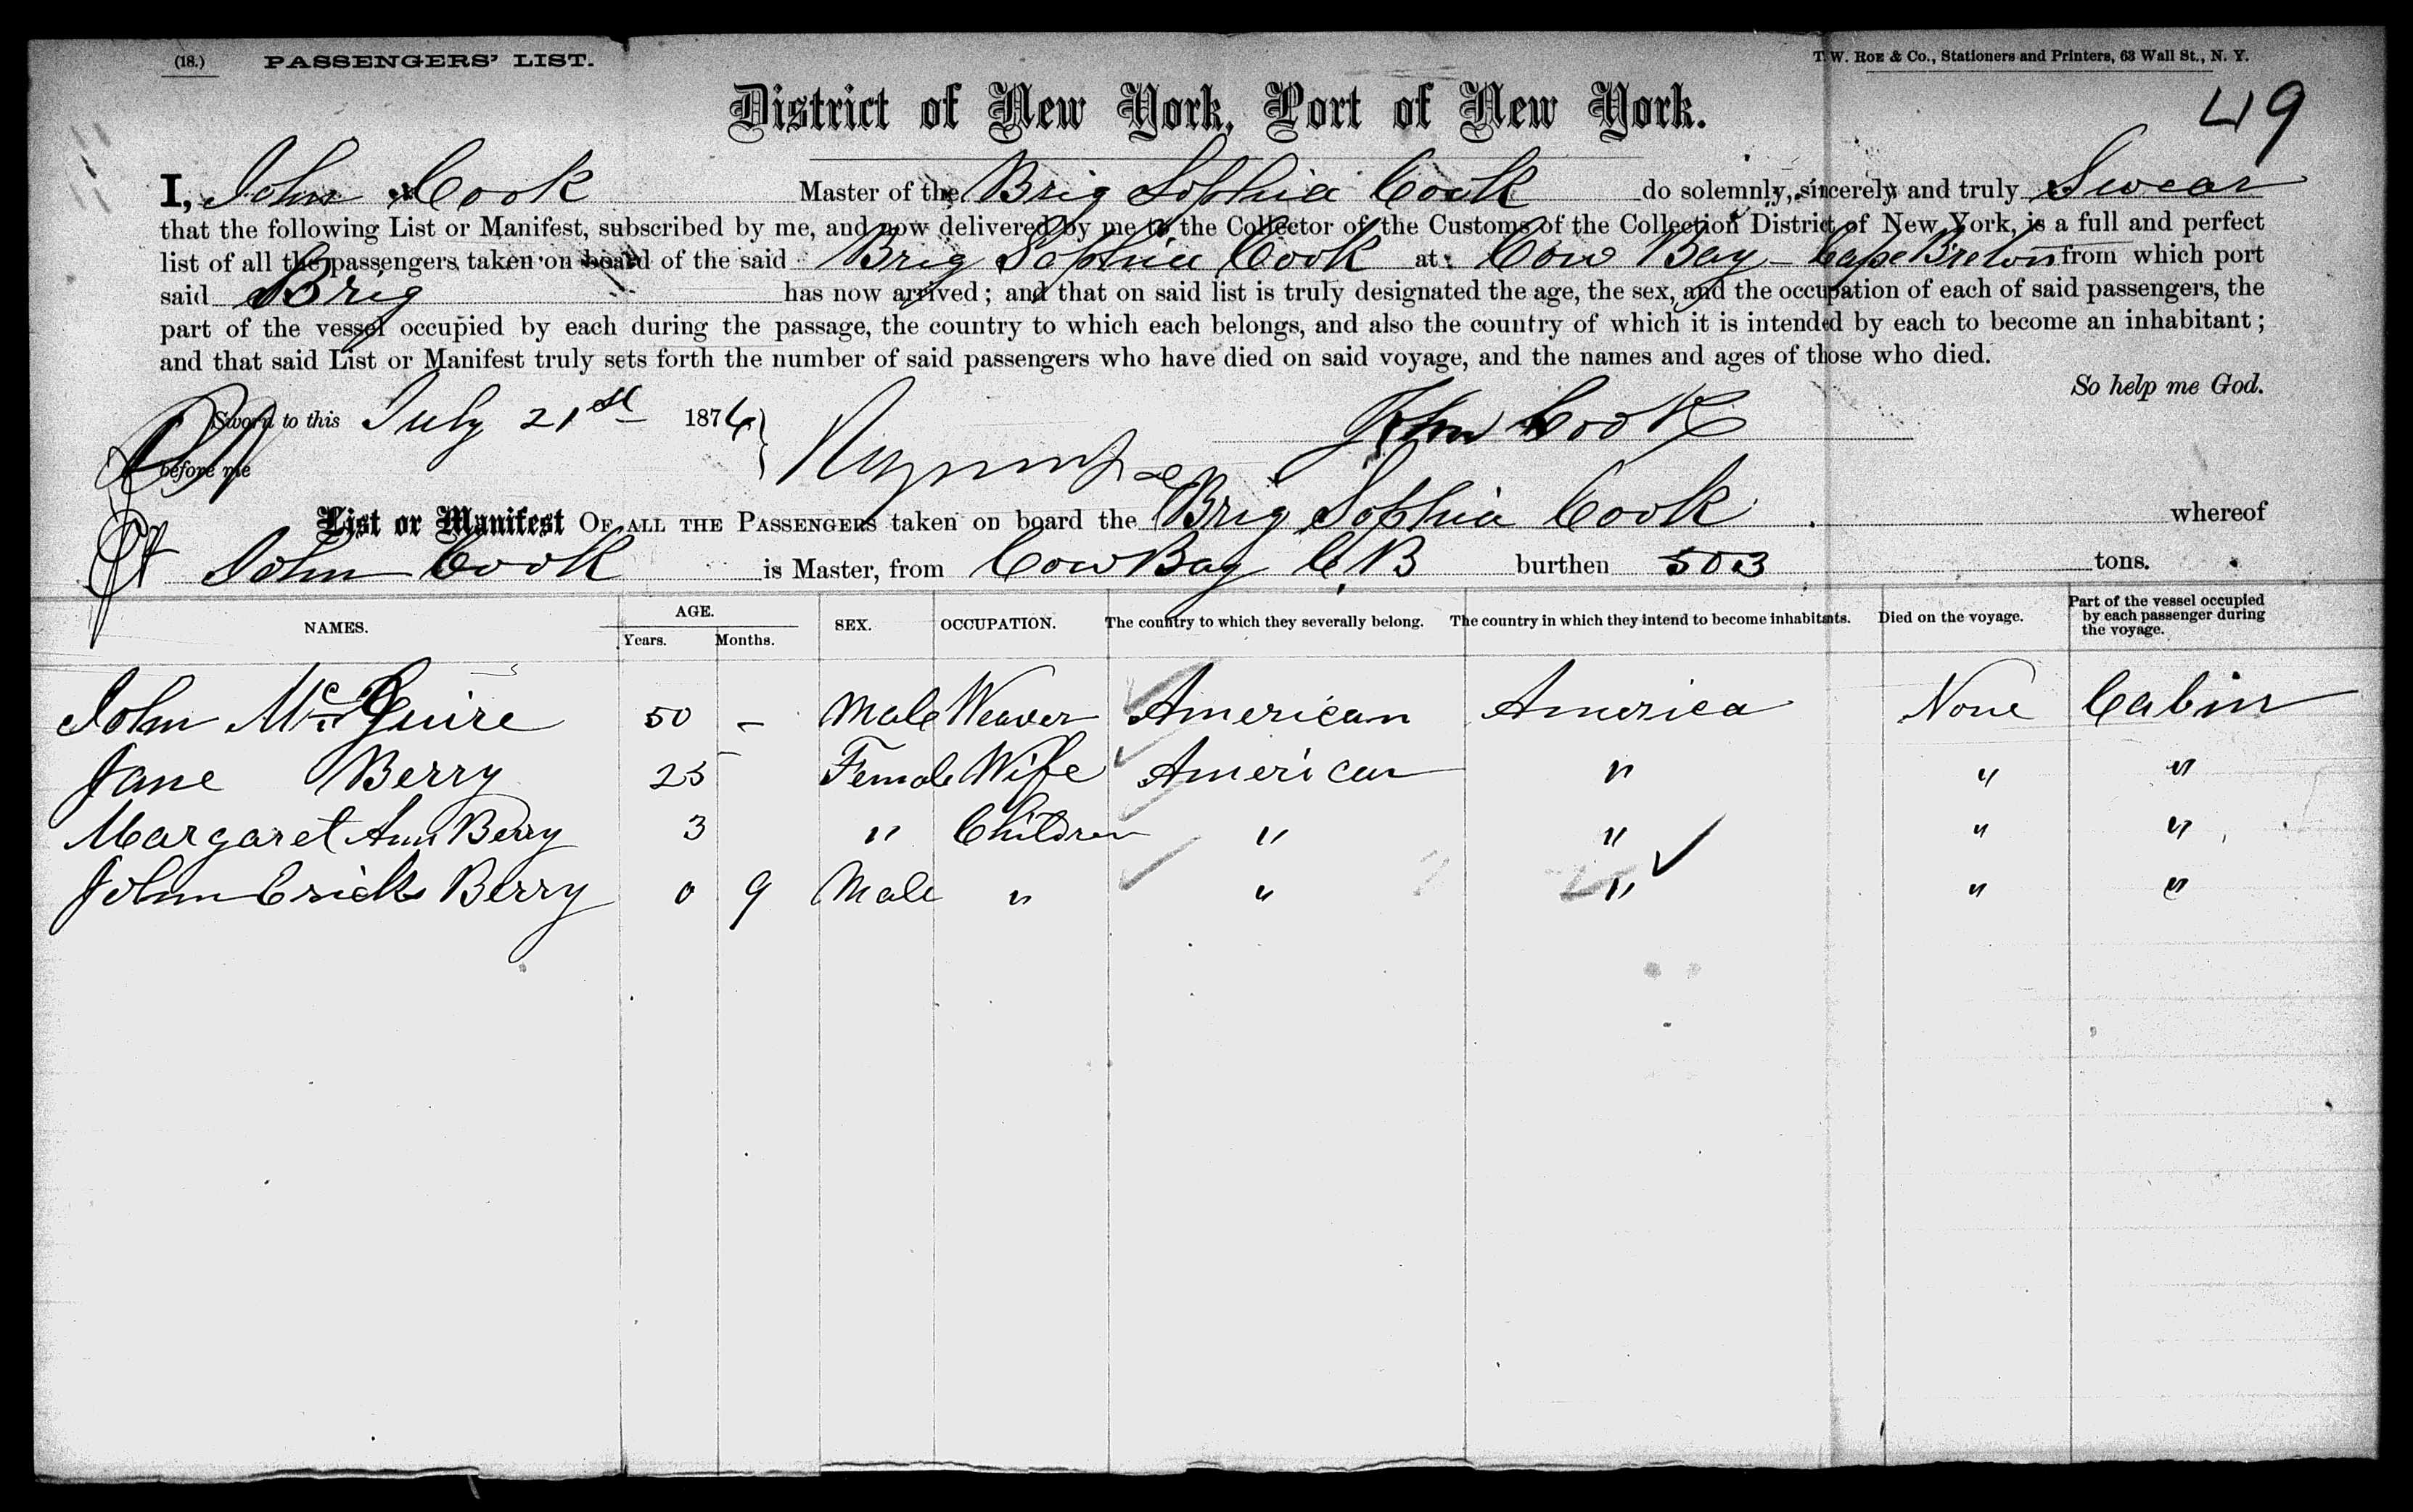 (18.) PASSENGERS' LIST. T. W. Roe & Co., Stationers and Printers, 63 Wall St., N. Y.
District of New York, Port of New York. 49
I, John Cook Master of the Brig Sophia Cook do solemnly, sincerely and truly Swear
that the following List or Manifest, subscribed by me, and now delivered by me to the Collector of the Customs of the Collection District of New York, is a full and perfect
list of all the passengers taken on board of the said Brig Sophia Cook at Cow Bay - Cape Breton from which port
said Brig has now arrived; and that on said list is truly designated the age, the sex, and the occupation of each of said passengers, the
part of the vessel occupied by each during the passage, the country to which each belongs, and also the country of which it is intended by each to become an inhabitant;
and that said List or Manifest truly sets forth the number of said passengers who have died on said voyage, and the names and ages of those who died.
So help me God.
Sworn to this July 21st 1876 John Cook
before me
List or Manifest OF ALL THE PASSENGERS taken on board the Brig Sophia Cook whereof
John Cook is Master, from Cow Bay C.B burthen 503 tons.
NAMES. AGE. Years. Months. SEX. OCCUPATION. The country to which they severally belong. The country in which they intend to become inhabitants. Died on the voyage. Part of the vessel occupied by each passenger during the voyage.
John McGuire 50 - Male Weaver American America None Cabin
Jane Berry 25 Female Wife American " " "
Margaret Ann Berry 3 " Children " " " "
John Erick Berry 0 9 Male " " " " "